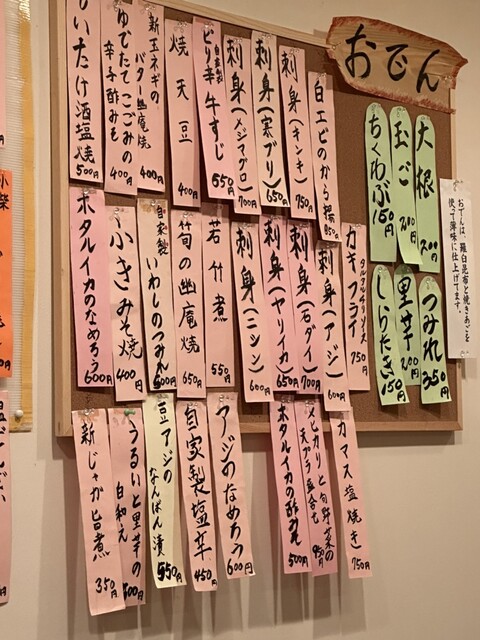 おでん
大根
200
玉ご
200
ちくわぶ
150円
つみれ
350
里芋
200
しらたき
150円
おでんは、羅臼昆布と焼きあごを
使って薄味に仕上げてます。
白エビのから揚
850
刺身(キンキ)
750円
刺身(寒ブリ)
650円
刺身(メジマグロ)
700円
自家製
ピリ辛牛すじ
550円
焼天豆
400円
新玉ネギの
バター幽庵焼
400円
ゆでたてこごみの
辛子酢みそ
400円
しいたけ酒塩焼
500円
タルタルチリソース
カキフライ
750円
刺身(アジ)
600円
刺身(石ダイ)
700円
刺身(ヤリイカ)
650円
刺身(ニシン)
600円
若竹煮
550円
筍の幽庵焼
650円
自家製
いわしのつみれ
500円
ふきみそ焼
400円
ホタルイカのなめろう
600円
カマス塩焼き
750円
メヒカリと旬野菜の
天プラ盛合せ
950円
ホタルイカの酢みそ
500円
アジのなめろう
600円
自家製塩辛
450円
豆アジの
なんばん漬
550円
うるいと里芋の
白和え
500円
新じゃが旨煮
350円